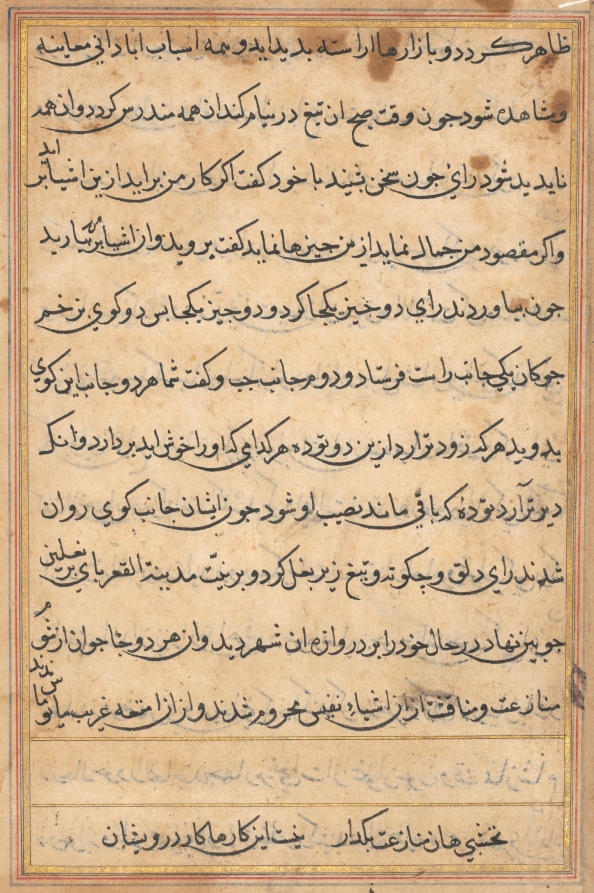 ظاهر کردد و بازارها اراسته بدید اید و همه اسباب ابادانی معاینه
و مشاهده شود جون وقت صبح ان تیغ در نیام کنند ان همه مندرس کردد وان همه
نابدید شود رای جون سخن بشنید با خود کفت اکر کار من براید ازین اشیا بر اید
واکر مقصود من جمال نماید ازین جیزها نماید کفت بروید و ان اشیا بر من بیارید
جون بیاوردند رای دو جیز یکجا کرد و دو جیز یکجا بس دو کوی در خم
جوکان یکی جانب راست فرستاد و دوم جانب جب و کفت شما هر دو جانب این کوی
بدوید هر که زودتر ارد ازین دو توده هر کدامی که او را خوش اید بردارد و انکه
دیرتر آرد توده که باقی ماند نصیب او شود جون ایشان جانب کوی روان
شدند رای دلق و جکوته و تیغ زیر بغل کرد و بر نیّت مدینة القعر بای بر نعلین
جوبین نهاد در حال خود را بر دروازه ان شهر دید وان هر دو جوان از شو
منازعت و مناقشت ازان اشیاء نفیس محروم شدند و ازان امتعه غریب مایوس ماندند
نخشبی هان منازعت بکدار نیت این کارها کار درویشان